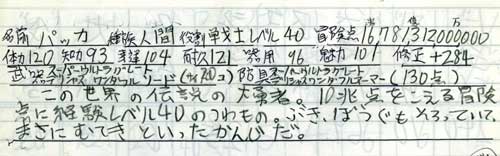 兆 億 万
名前 パッカ 種族 人間 役割 戦士 レベル 40 冒険点 16781312000000
体力 120 知力 93 素速 104 耐久 121 器用 96 魅力 101 修正 +284
武器 スーパーウルトラグレートスペシャルワンダフルソード (サイコロ20コ) 防具 スーパーウルトラグレートスペシャルワンダフルアーマー (130点)
この世界の伝説の大勇者。10兆点をこえる冒険
点に経験レベル40のつわもの。ぶき、ぼうぐもそろっていて、
まさにむてきといったかんじだ。